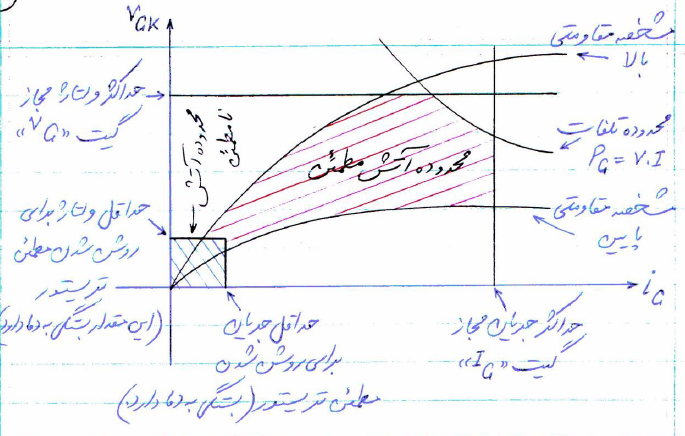 V_GK
مشخصه مقاومتی
بالا
حداکثر ولتاژ مجاز
گیت «V_G»
محدوده آتش
نامطمئن
محدوده تلفات
P_G = V.I
محدوده آتش مطمئن
مشخصه مقاومتی
پایین
حداقل ولتاژ برای
روشن شدن مطمئن
تریستور
(این مقدار بستگی به دما دارد)
i_G
حداقل جریان
برای روشن شدن
مطمئن تریستور (بستگی به دما دارد)
حداکثر جریان مجاز
گیت «I_G»